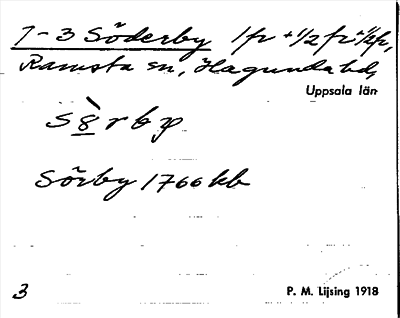 1-3 Söderby 1 fr + 1/2 fr + 1/2 fr,
Ramsta sn, Hagunda hd,
Uppsala län
Sörby 1766 kb
3 P. M. Lijsing 1918